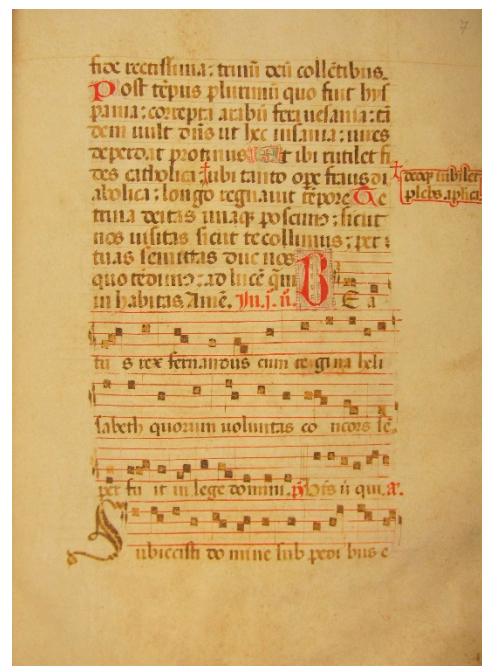 7
fide rectissima: trinū deū colētibus.
Post tēpus plurimū quo fuit hys
pania: correpta arabū fera vesania: tā
dem vult dn̄s ut hec insania: vires
deperdat protinus Et ibi rutilet fi
des catholica ubi tanto ope fraus di
abolica: longo regnavit tēpore Te
trina deitas unaq̄ poscimꝰ: sicut
nos visitas sicut te collimus: per
tuas semitas duc nos
quo tēdimꝰ: ad lucē quā
in habitas Amē. In. j. ñ.
deoq iubilet
plebs. aplica
B E a
tu s rex fernandus cum regina heli
sabeth quorum voluntas co ncors sē
per fu it in lege domini. p̄s
Subiecisti do mine sub pedi bus e